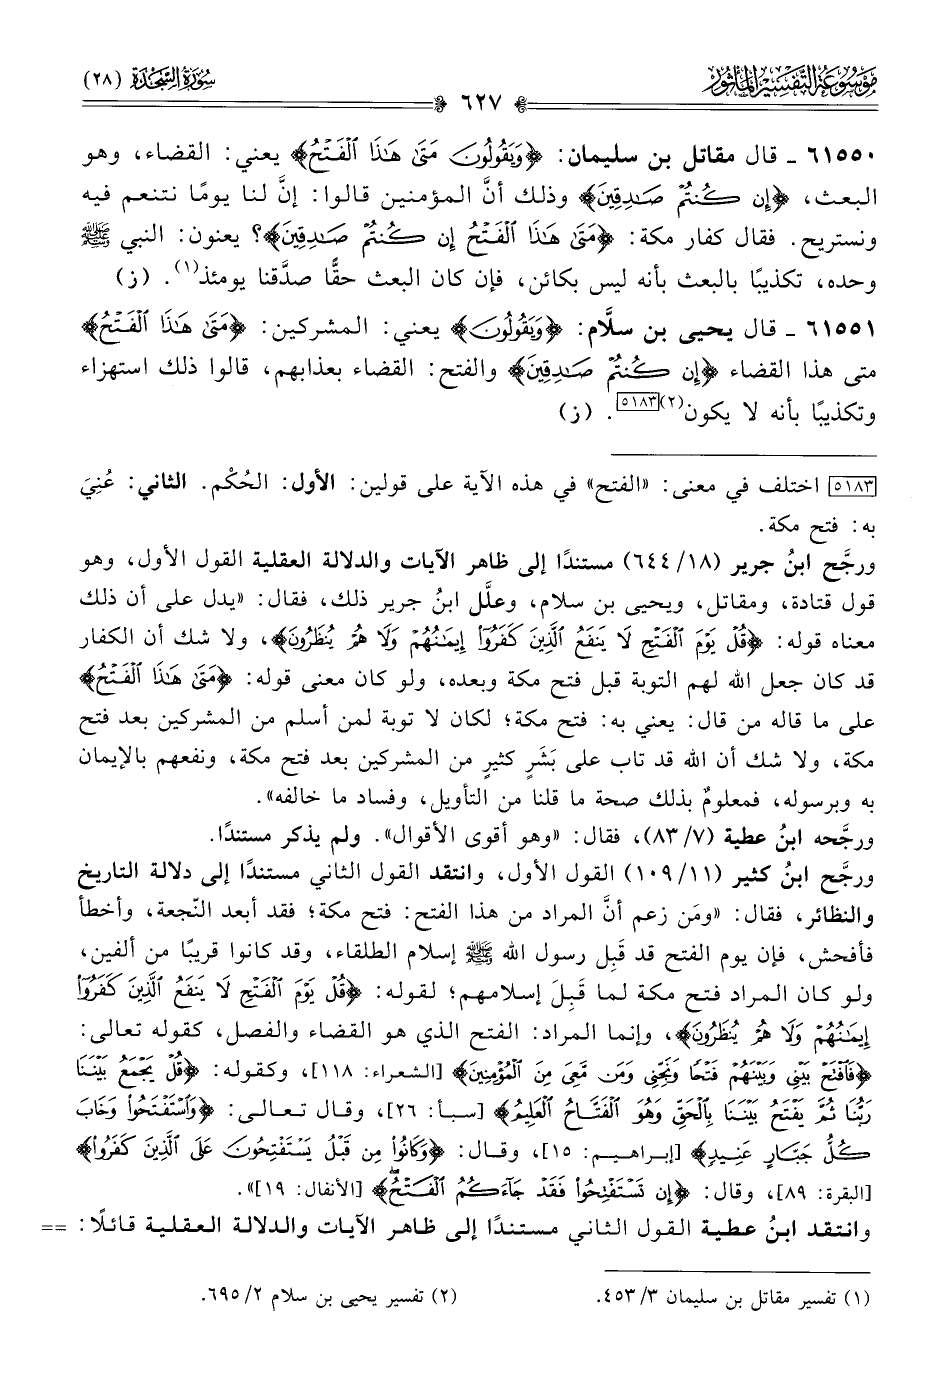 مَوْسُوعَة التَّفْسِير المَأْثُور
سُورَةُ السَّجْدَةِ (٢٨)
٦٢٧
٦١٥٥٠ ـ قال مقاتل بن سليمان: ﴿وَيَقُولُونَ مَتَىٰ هَٰذَا ٱلْفَتْحُ﴾ يعني: القضاء، وهو
البعث، ﴿إِن كُنتُمْ صَٰدِقِينَ﴾ وذلك أنَّ المؤمنين قالوا: إنَّ لنا يومًا نتنعم فيه
ونستريح. فقال كفار مكة: ﴿مَتَىٰ هَٰذَا ٱلْفَتْحُ إِن كُنتُمْ صَٰدِقِينَ﴾؟ يعنون: النبي ﷺ
وحده، تكذيبًا بالبعث بأنه ليس بكائن، فإن كان البعث حقًّا صدَّقنا يومئذ(١). (ز)
٦١٥٥١ ـ قال يحيى بن سلَّام: ﴿وَيَقُولُونَ﴾ يعني: المشركين: ﴿مَتَىٰ هَٰذَا ٱلْفَتْحُ﴾
متى هذا القضاء ﴿إِن كُنتُمْ صَٰدِقِينَ﴾ والفتح: القضاء بعذابهم، قالوا ذلك استهزاء
وتكذيبًا بأنه لا يكون(٢)[٥١٨٣]. (ز)
[٥١٨٣] اختلف في معنى: «الفتح» في هذه الآية على قولين: الأول: الحُكْم. الثاني: عُنِيَ
به: فتح مكة.
ورجَّح ابنُ جرير (١٨/ ٦٤٤) مستندًا إلى ظاهر الآيات والدلالة العقلية القول الأول، وهو
قول قتادة، ومقاتل، ويحيى بن سلام، وعلَّل ابنُ جرير ذلك، فقال: «يدل على أن ذلك
معناه قوله: ﴿قُلْ يَوْمَ ٱلْفَتْحِ لَا يَنفَعُ ٱلَّذِينَ كَفَرُوٓا۟ إِيمَٰنُهُمْ وَلَا هُمْ يُنظَرُونَ﴾، ولا شك أن الكفار
قد كان جعل الله لهم التوبة قبل فتح مكة وبعده، ولو كان معنى قوله: ﴿مَتَىٰ هَٰذَا ٱلْفَتْحُ﴾
على ما قاله من قال: يعني به: فتح مكة؛ لكان لا توبة لمن أسلم من المشركين بعد فتح
مكة، ولا شك أن الله قد تاب على بَشَرٍ كثيرٍ من المشركين بعد فتح مكة، ونفعهم بالإيمان
به وبرسوله، فمعلومٌ بذلك صحة ما قلنا من التأويل، وفساد ما خالفه».
ورجَّحه ابنُ عطية (٧/ ٨٣)، فقال: «وهو أقوى الأقوال». ولم يذكر مستندًا.
ورجَّح ابنُ كثير (١١/ ١٠٩) القول الأول، وانتقد القول الثاني مستندًا إلى دلالة التاريخ
والنظائر، فقال: «ومَن زعم أنَّ المراد من هذا الفتح: فتح مكة؛ فقد أبعد النّجعة، وأخطأ
فأفحش، فإن يوم الفتح قد قَبِل رسول الله ﷺ إسلام الطلقاء، وقد كانوا قريبًا من ألفين،
ولو كان المراد فتح مكة لما قَبِلَ إسلامهم؛ لقوله: ﴿قُلْ يَوْمَ ٱلْفَتْحِ لَا يَنفَعُ ٱلَّذِينَ كَفَرُوٓا۟
إِيمَٰنُهُمْ وَلَا هُمْ يُنظَرُونَ﴾، وإنما المراد: الفتح الذي هو القضاء والفصل، كقوله تعالى:
﴿فَٱفْتَحْ بَيْنِى وَبَيْنَهُمْ فَتْحًا وَنَجِّنِى وَمَن مَّعِىَ مِنَ ٱلْمُؤْمِنِينَ﴾ [الشعراء: ١١٨]، وكقوله: ﴿قُلْ يَجْمَعُ بَيْنَنَا
رَبُّنَا ثُمَّ يَفْتَحُ بَيْنَنَا بِٱلْحَقِّ وَهُوَ ٱلْفَتَّاحُ ٱلْعَلِيمُ﴾ [سبأ: ٢٦]، وقال تعالى: ﴿وَٱسْتَفْتَحُوا۟ وَخَابَ
كُلُّ جَبَّارٍ عَنِيدٍ﴾ [إبراهيم: ١٥]، وقال: ﴿وَكَانُوا۟ مِن قَبْلُ يَسْتَفْتِحُونَ عَلَى ٱلَّذِينَ كَفَرُوا۟﴾
[البقرة: ٨٩]، وقال: ﴿إِن تَسْتَفْتِحُوا۟ فَقَدْ جَآءَكُمُ ٱلْفَتْحُ﴾ [الأنفال: ١٩]».
وانتقد ابنُ عطية القول الثاني مستندًا إلى ظاهر الآيات والدلالة العقلية قائلًا: ==
(١) تفسير مقاتل بن سليمان ٣/ ٤٥٣.
(٢) تفسير يحيى بن سلام ٢/ ٦٩٥.